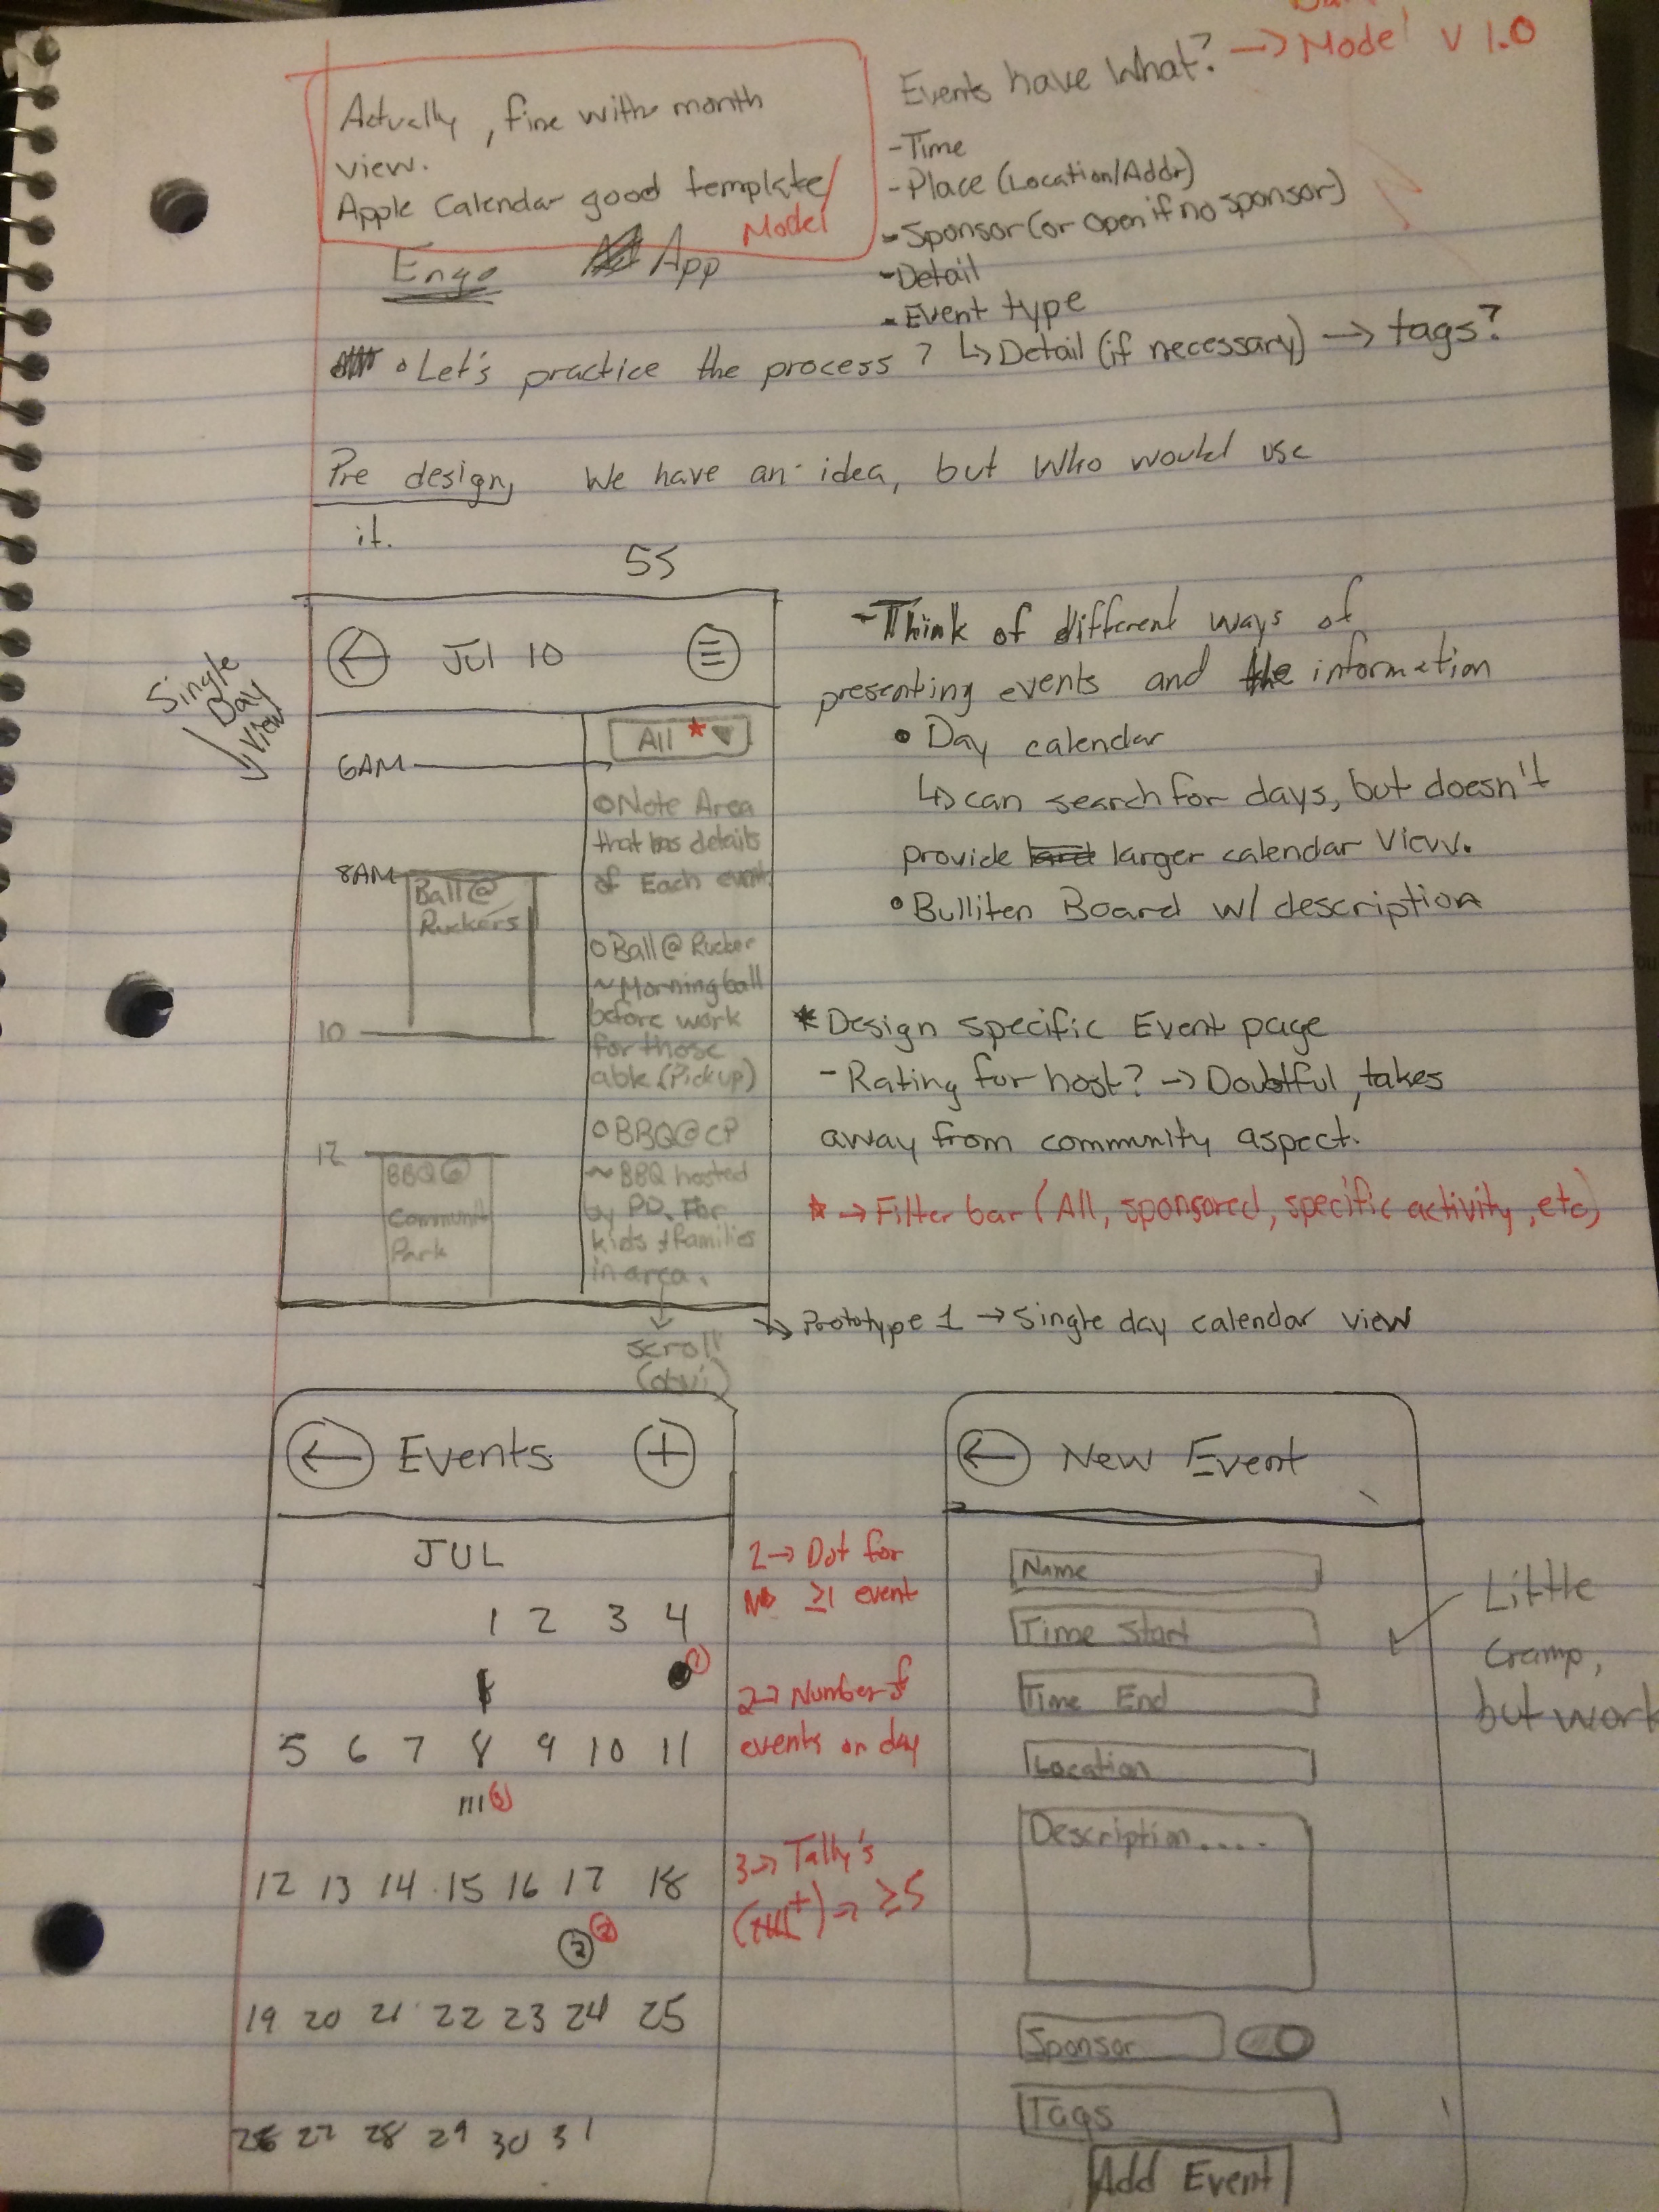 Actually, fine with month
view.
Apple Calendar good template/
Model
Events have What? → Model V 1.0
- Time
- Place (Location/Addr)
- Sponsor (or open if no sponsor)
- Detail
- Event type
↳ Detail (if necessary) → tags?
Engo App
• Let's practice the process?
Pre design, We have an idea, but Who would use
it.
5S
Single
Day
View
Jul 10
All *▼
6AM
8AM
Ball @
Ruckers
10
12
BBQ @
Communit
Park
○ Note Area
that has details
of Each event.
○ Ball @ Rucker
~ Morning ball
before work
for those
able (Pickup)
○ BBQ @ CP
~ BBQ hosted
by PD. For
kids + families
in area.
scroll
(obvi)
- Think of different ways of
presenting events and the information
• Day calendar
↳ can search for days, but doesn't
provide larger calendar View.
• Bulliten Board w/ description
* Design specific Event page
- Rating for host? → Doubtful, takes
away from community aspect.
* → Filter bar (All, sponsored, specific activity, etc)
→ Prototype 1 → Single day calendar view
← Events +
JUL
1 2 3 4
1
5 6 7 8 9 10 11
III 3
12 13 14 15 16 17 18
2 2
19 20 21 22 23 24 25
26 27 28 29 30 31
1 → Dot for
≥1 event
2 → Number of
events on day
3 → Tally's
→ ≥5
← New Event
Name
Time Start
Time End
Location
Description.....
Sponsor
Tags
Add Event
Little
Cramp,
but work